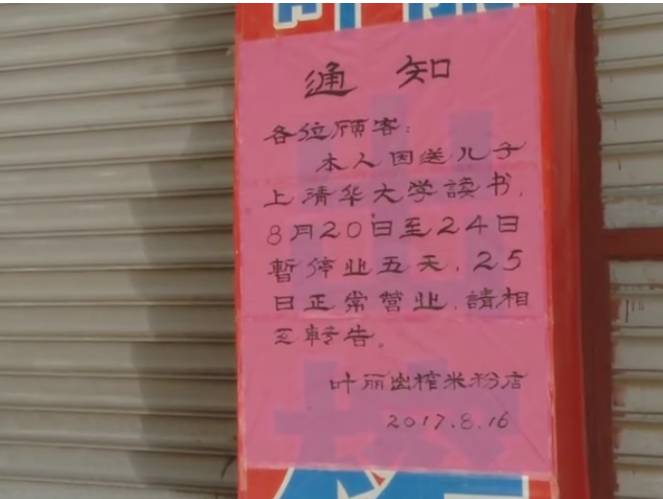 通知
各位顾客：
本人因送儿子
上清华大学读书，
8月20日至24日
暂停业五天，25
日正常营业，請相
互转告。
叶丽幽榨米粉店
2017.8.16